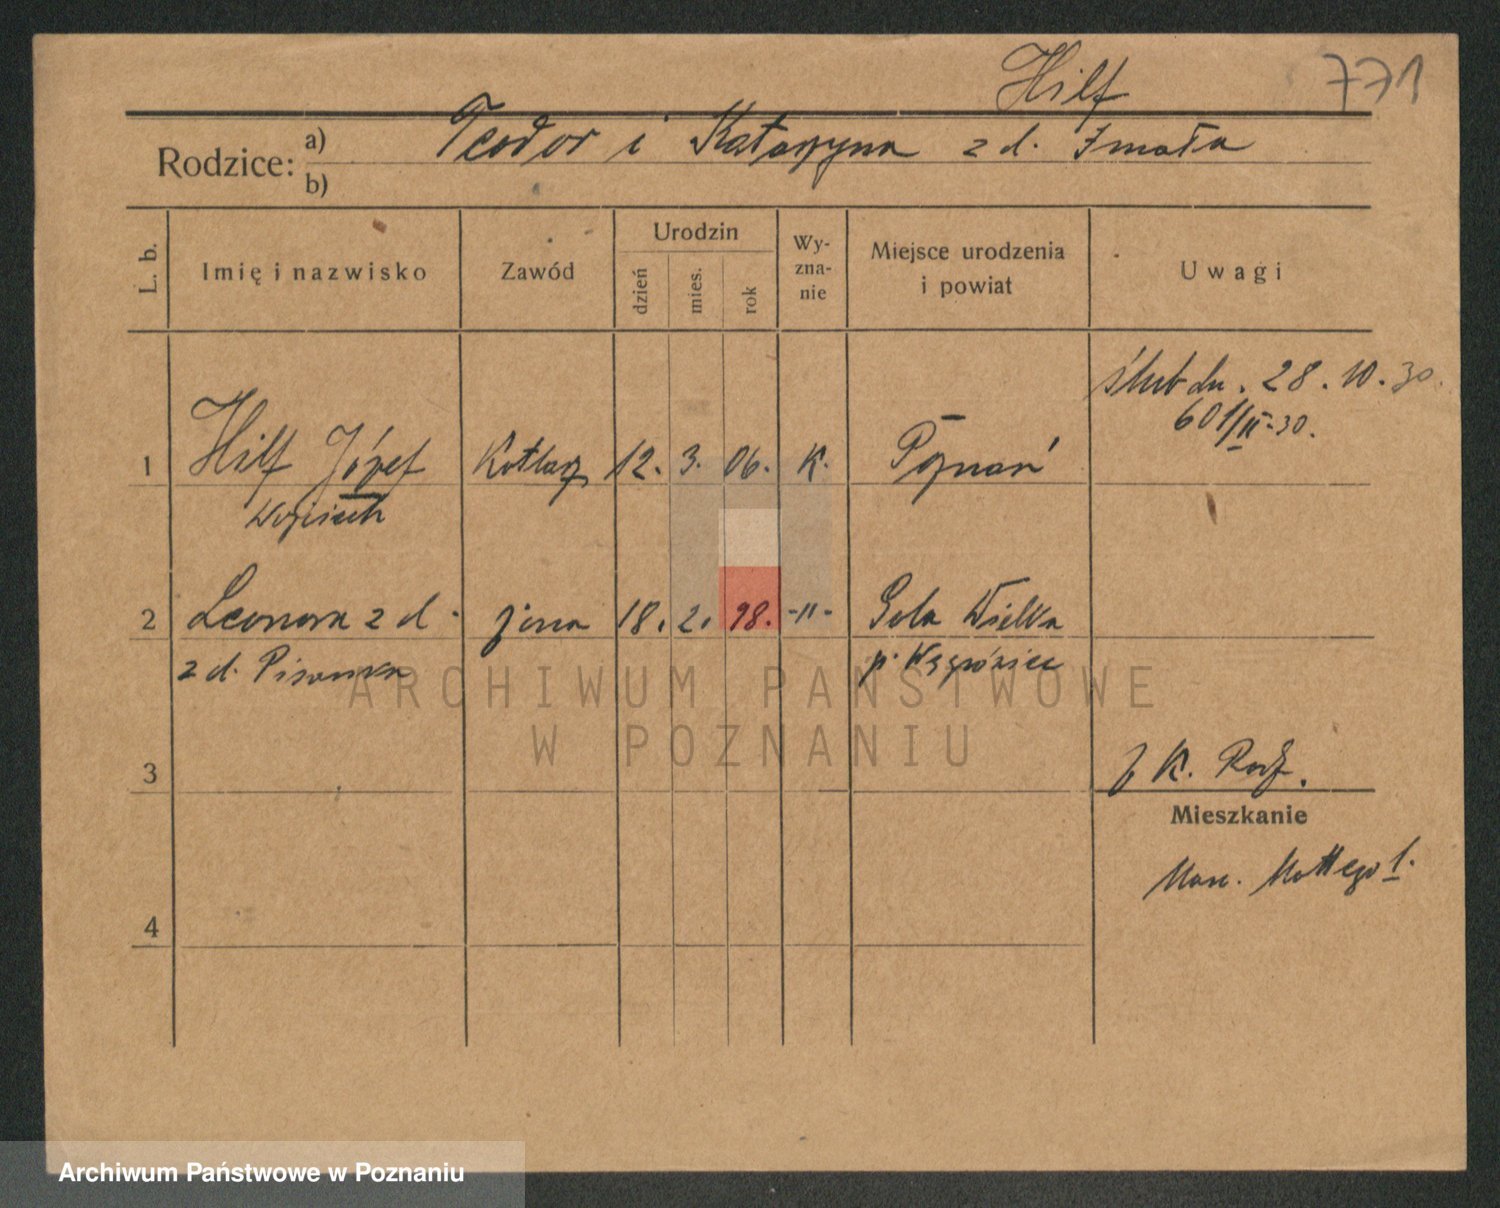 Hilf 771
Rodzice: a) Teodor i Katarzyna z d. Zmoła
b)
L. b. Imię i nazwisko Zawód Urodzin dzień mies. rok Wy-zna-nie Miejsce urodzenia i powiat Uwagi
ślub dn. 28. 10. 30.
601/II-30.
1 Hilf Józef Kotlarz 12. 3. 06. K. Poznań
Wojciech
2 Leonora z d. żona 18. 2. 98. -"- Gola Wielka
z d. Pisarska p. Wągrówiec
3 K.
Mieszkanie
Marc. Mottego 1.
4
ARCHIWUM PAŃSTWOWE
W POZNANIU
Archiwum Państwowe w Poznaniu